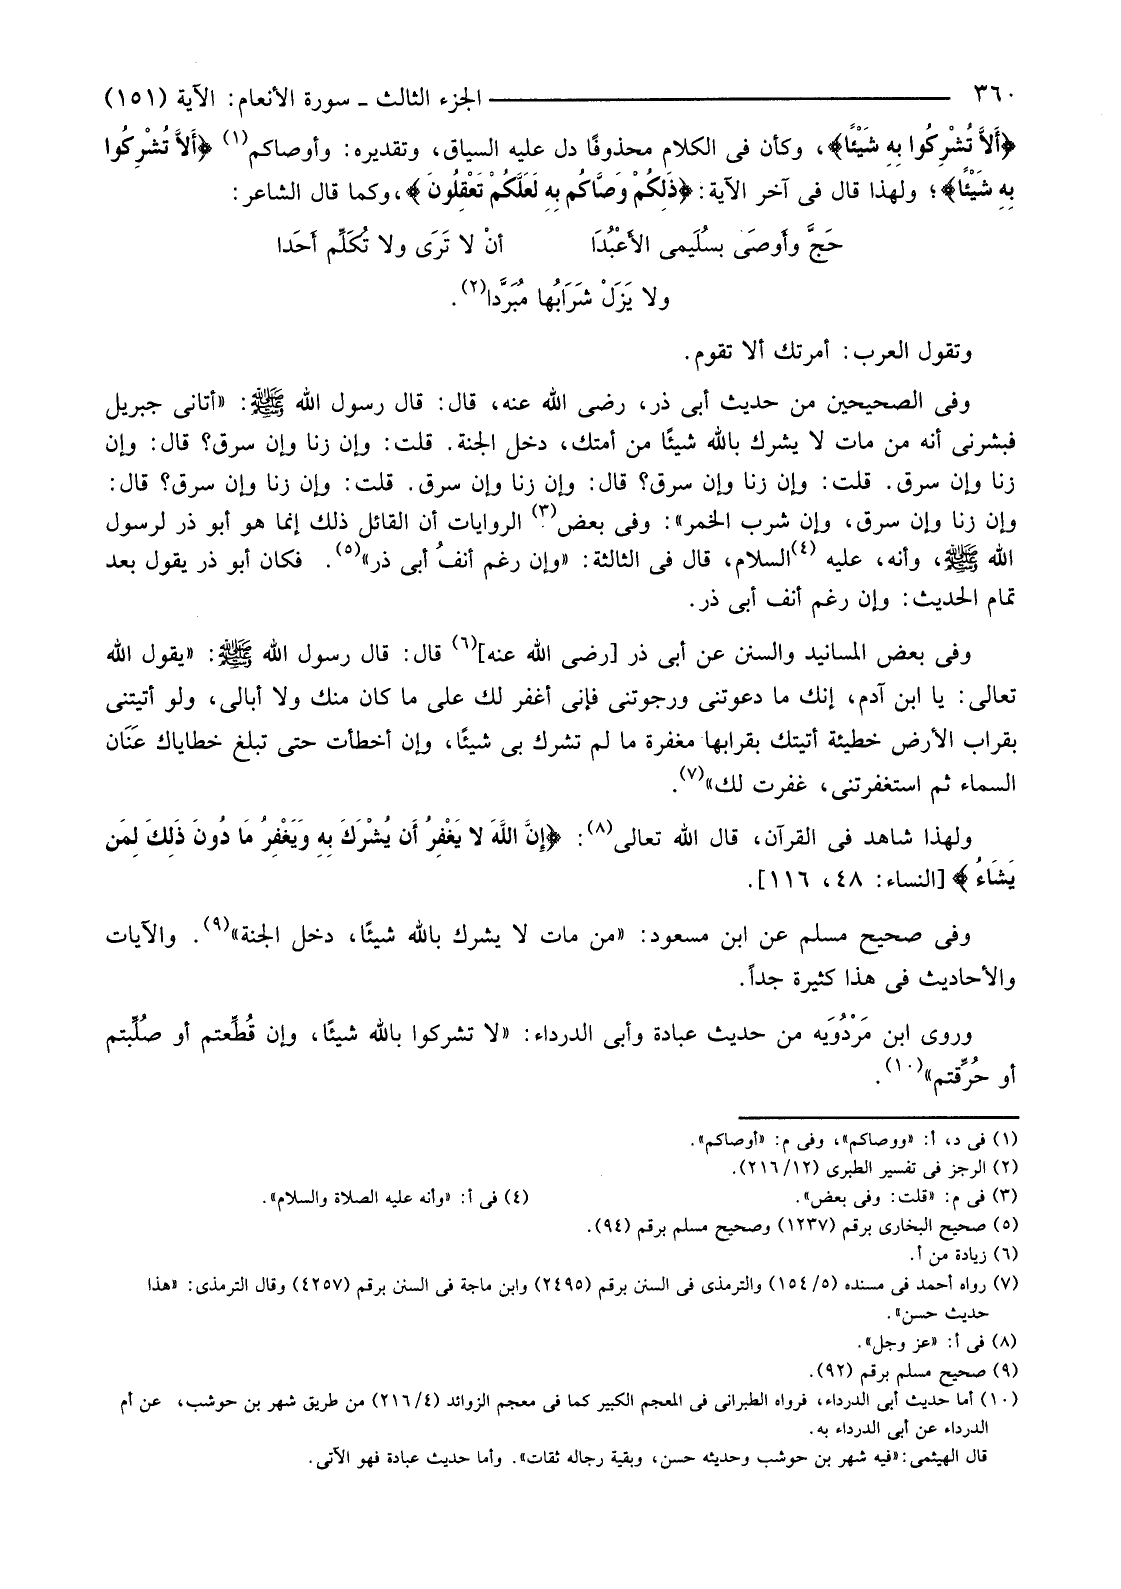 ٣٦٠ ــــــ الجزء الثالث ـ سورة الأنعام: الآية (١٥١)
﴿أَلاَّ تُشْرِكُوا بِهِ شَيْئًا﴾، وكأن فى الكلام محذوفًا دل عليه السياق، وتقديره: وأوصاكم(١) ﴿أَلاَّ تُشْرِكُوا
بِهِ شَيْئًا﴾؛ ولهذا قال فى آخر الآية: ﴿ذَلِكُمْ وَصَّاكُم بِهِ لَعَلَّكُمْ تَعْقِلُونَ﴾، وكما قال الشاعر:
حَجَّ وأَوصَى بسُلَيمى الأَعْبُدَا أنْ لا تَرَى ولا تُكَلِّم أَحَدا
ولا يَزَلْ شَرَابُها مُبَرَّدا(٢).
وتقول العرب: أمرتك ألا تقوم.
وفى الصحيحين من حديث أبى ذر، رضى الله عنه، قال: قال رسول الله ﷺ: «أتانى جبريل
فبشرنى أنه من مات لا يشرك بالله شيئًا من أمتك، دخل الجنة. قلت: وإن زنا وإن سرق؟ قال: وإن
زنا وإن سرق. قلت: وإن زنا وإن سرق؟ قال: وإن زنا وإن سرق. قلت: وإن زنا وإن سرق؟ قال:
وإن زنا وإن سرق، وإن شرب الخمر»: وفى بعض(٣) الروايات أن القائل ذلك إنما هو أبو ذر لرسول
الله ﷺ، وأنه، عليه (٤)السلام، قال فى الثالثة: «وإن رغم أنفُ أبى ذر»(٥). فكان أبو ذر يقول بعد
تمام الحديث: وإن رغم أنف أبى ذر.
وفى بعض المسانيد والسنن عن أبى ذر [رضى الله عنه](٦) قال: قال رسول الله ﷺ: «يقول الله
تعالى: يا ابن آدم، إنك ما دعوتنى ورجوتنى فإنى أغفر لك على ما كان منك ولا أبالى، ولو أتيتنى
بقراب الأرض خطيئة أتيتك بقرابها مغفرة ما لم تشرك بى شيئًا، وإن أخطأت حتى تبلغ خطاياك عَنَان
السماء ثم استغفرتنى، غفرت لك»(٧).
ولهذا شاهد فى القرآن، قال الله تعالى(٨): ﴿إِنَّ اللَّهَ لا يَغْفِرُ أَن يُشْرَكَ بِهِ وَيَغْفِرُ مَا دُونَ ذَلِكَ لِمَن
يَشَاءُ﴾ [النساء: ٤٨، ١١٦].
وفى صحيح مسلم عن ابن مسعود: «من مات لا يشرك بالله شيئًا، دخل الجنة»(٩). والآيات
والأحاديث فى هذا كثيرة جداً.
وروى ابن مَرْدُوَيه من حديث عبادة وأبى الدرداء: «لا تشركوا بالله شيئًا، وإن قُطِّعتم أو صُلِّبتم
أو حُرِّقتم»(١٠).
(١) فى د، أ: «ووصاكم»، وفى م: «أوصاكم».
(٢) الرجز فى تفسير الطبرى (٢١٦/١٢).
(٣) فى م: «قلت: وفى بعض». (٤) فى أ: «وأنه عليه الصلاة والسلام».
(٥) صحيح البخارى برقم (١٢٣٧) وصحيح مسلم برقم (٩٤).
(٦) زيادة من أ.
(٧) رواه أحمد فى مسنده (١٥٤/٥) والترمذى فى السنن برقم (٢٤٩٥) وابن ماجة فى السنن برقم (٤٢٥٧) وقال الترمذى: «هذا
حديث حسن».
(٨) فى أ: «عز وجل».
(٩) صحيح مسلم برقم (٩٢).
(١٠) أما حديث أبى الدرداء، فرواه الطبرانى فى المعجم الكبير كما فى معجم الزوائد (٢١٦/٤) من طريق شهر بن حوشب، عن أم
الدرداء عن أبى الدرداء به.
قال الهيثمى: «فيه شهر بن حوشب وحديثه حسن، وبقية رجاله ثقات». وأما حديث عبادة فهو الآتى.